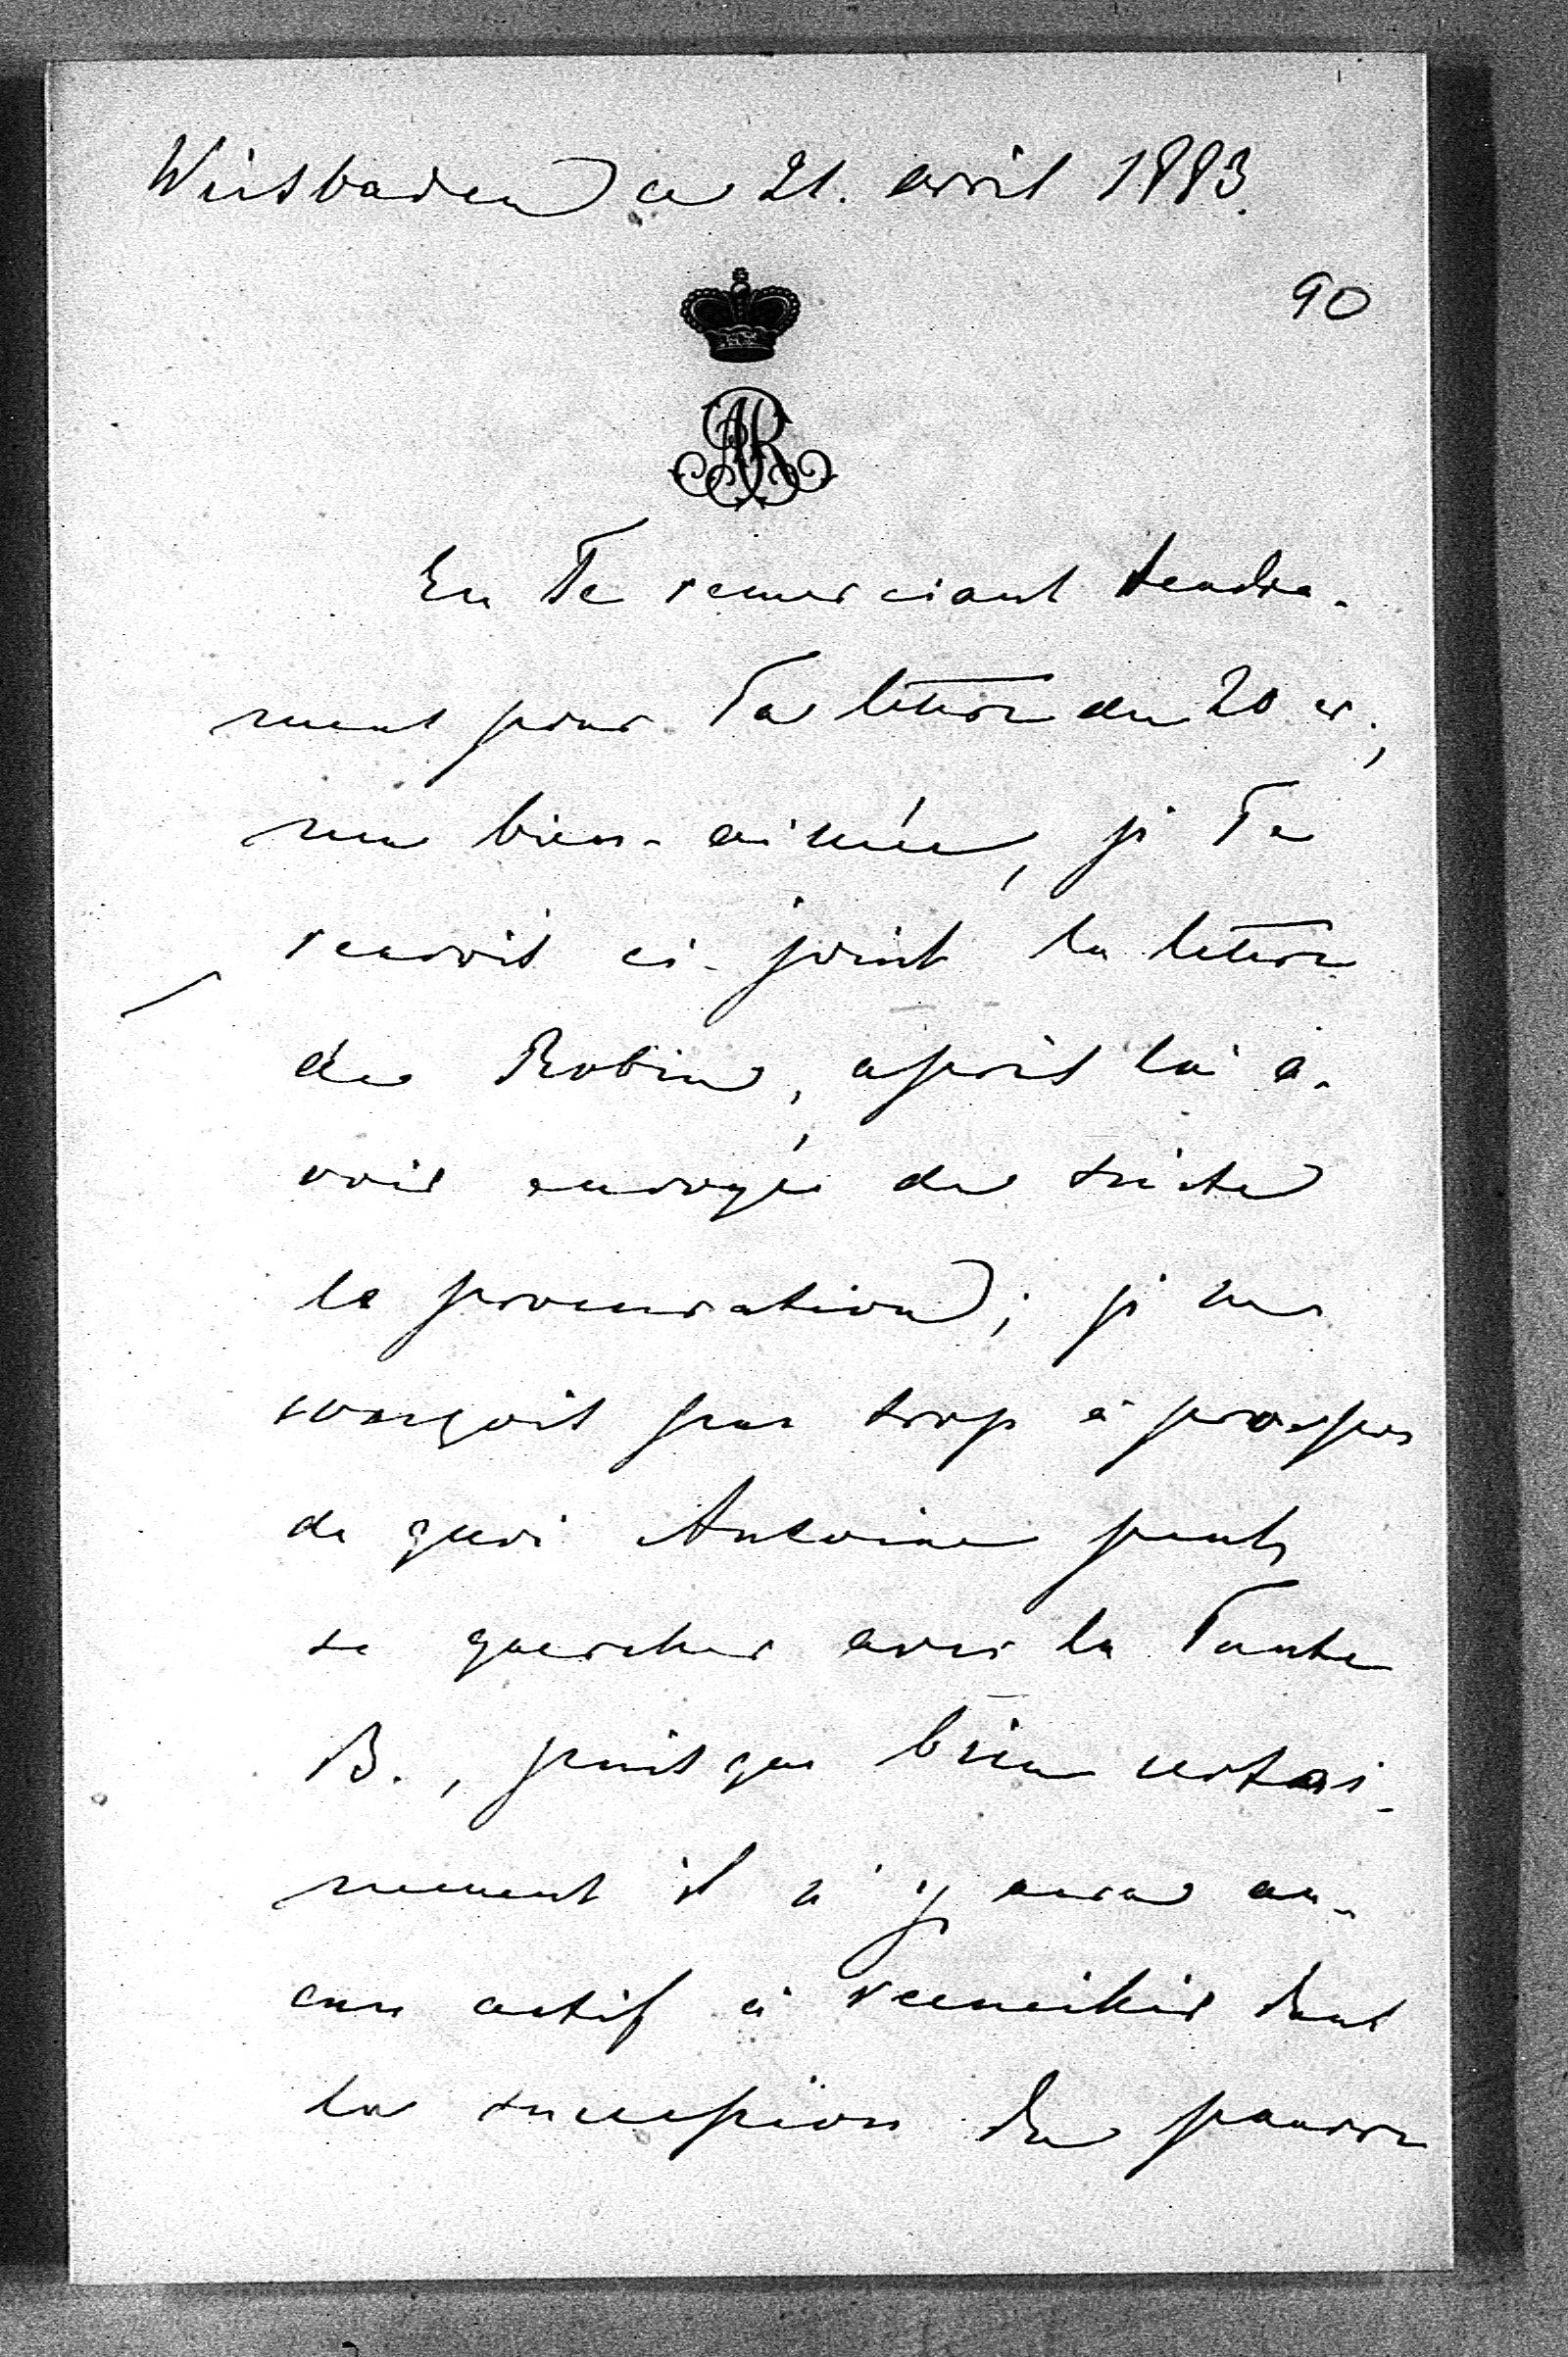 Wiesbaden ce 21. avril 1883.
90
AR
En Te remerciant tendre-
ment pour Ta lettre du 20 cr.,
ma bien-aimée, je Te
renvois ci-joint la lettre
de Robin, après lui a-
voir envoyé de suite
la procuration; je ne
conçois pas trop à propos
de quoi Antoine peut
se quereller avec la Tante
B., puisque bien certai-
nement il n'y aura au-
cun actif à recueillir dans
la succession du pauvre